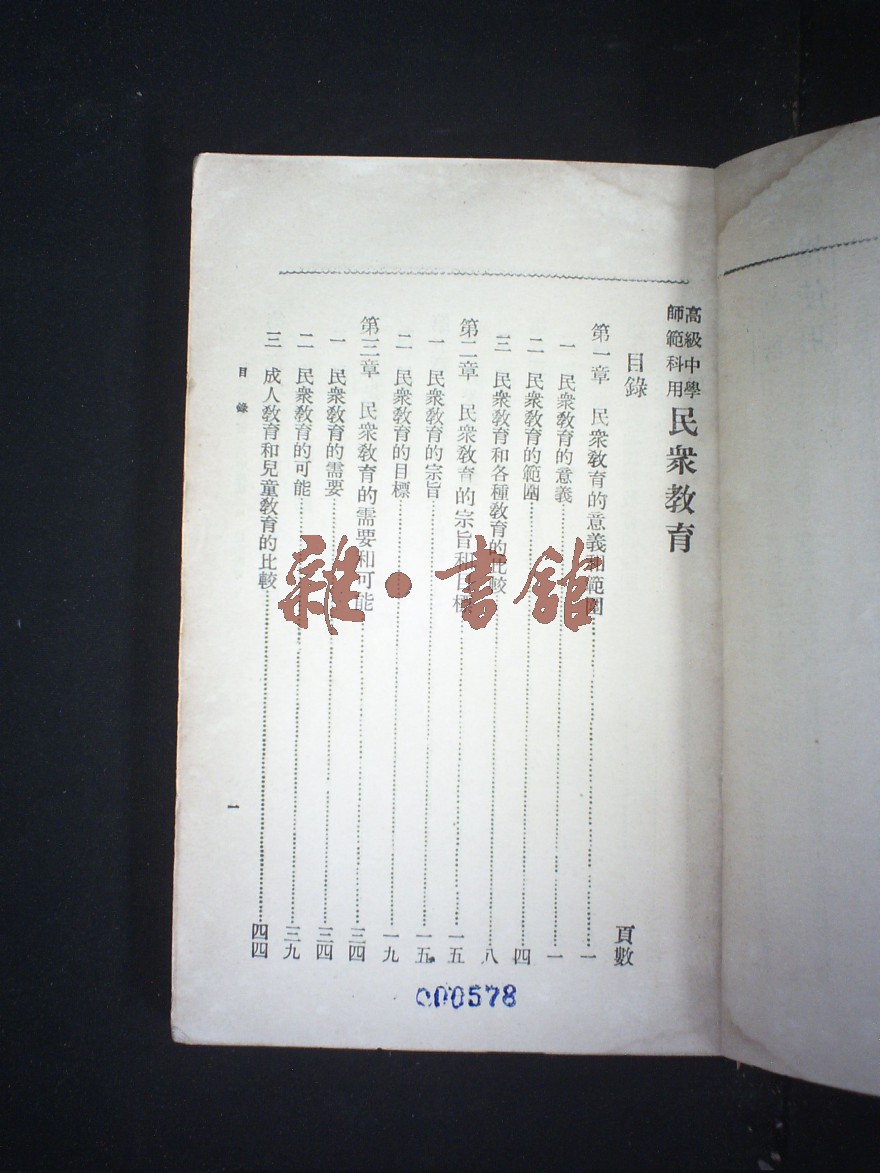 高級中學
師範科用
民衆教育
目錄
頁數
第一章 民衆教育的意義和範圍 一
一 民衆教育的意義 一
二 民衆教育的範圍 四
三 民衆教育和各種教育的比較 八
第二章 民衆教育的宗旨和目標 一五
一 民衆教育的宗旨 一五
二 民衆教育的目標 一九
第三章 民衆教育的需要和可能 三四
一 民衆教育的需要 三四
二 民衆教育的可能 三九
三 成人教育和兒童教育的比較 四四
目錄
一
000578
雜·書館